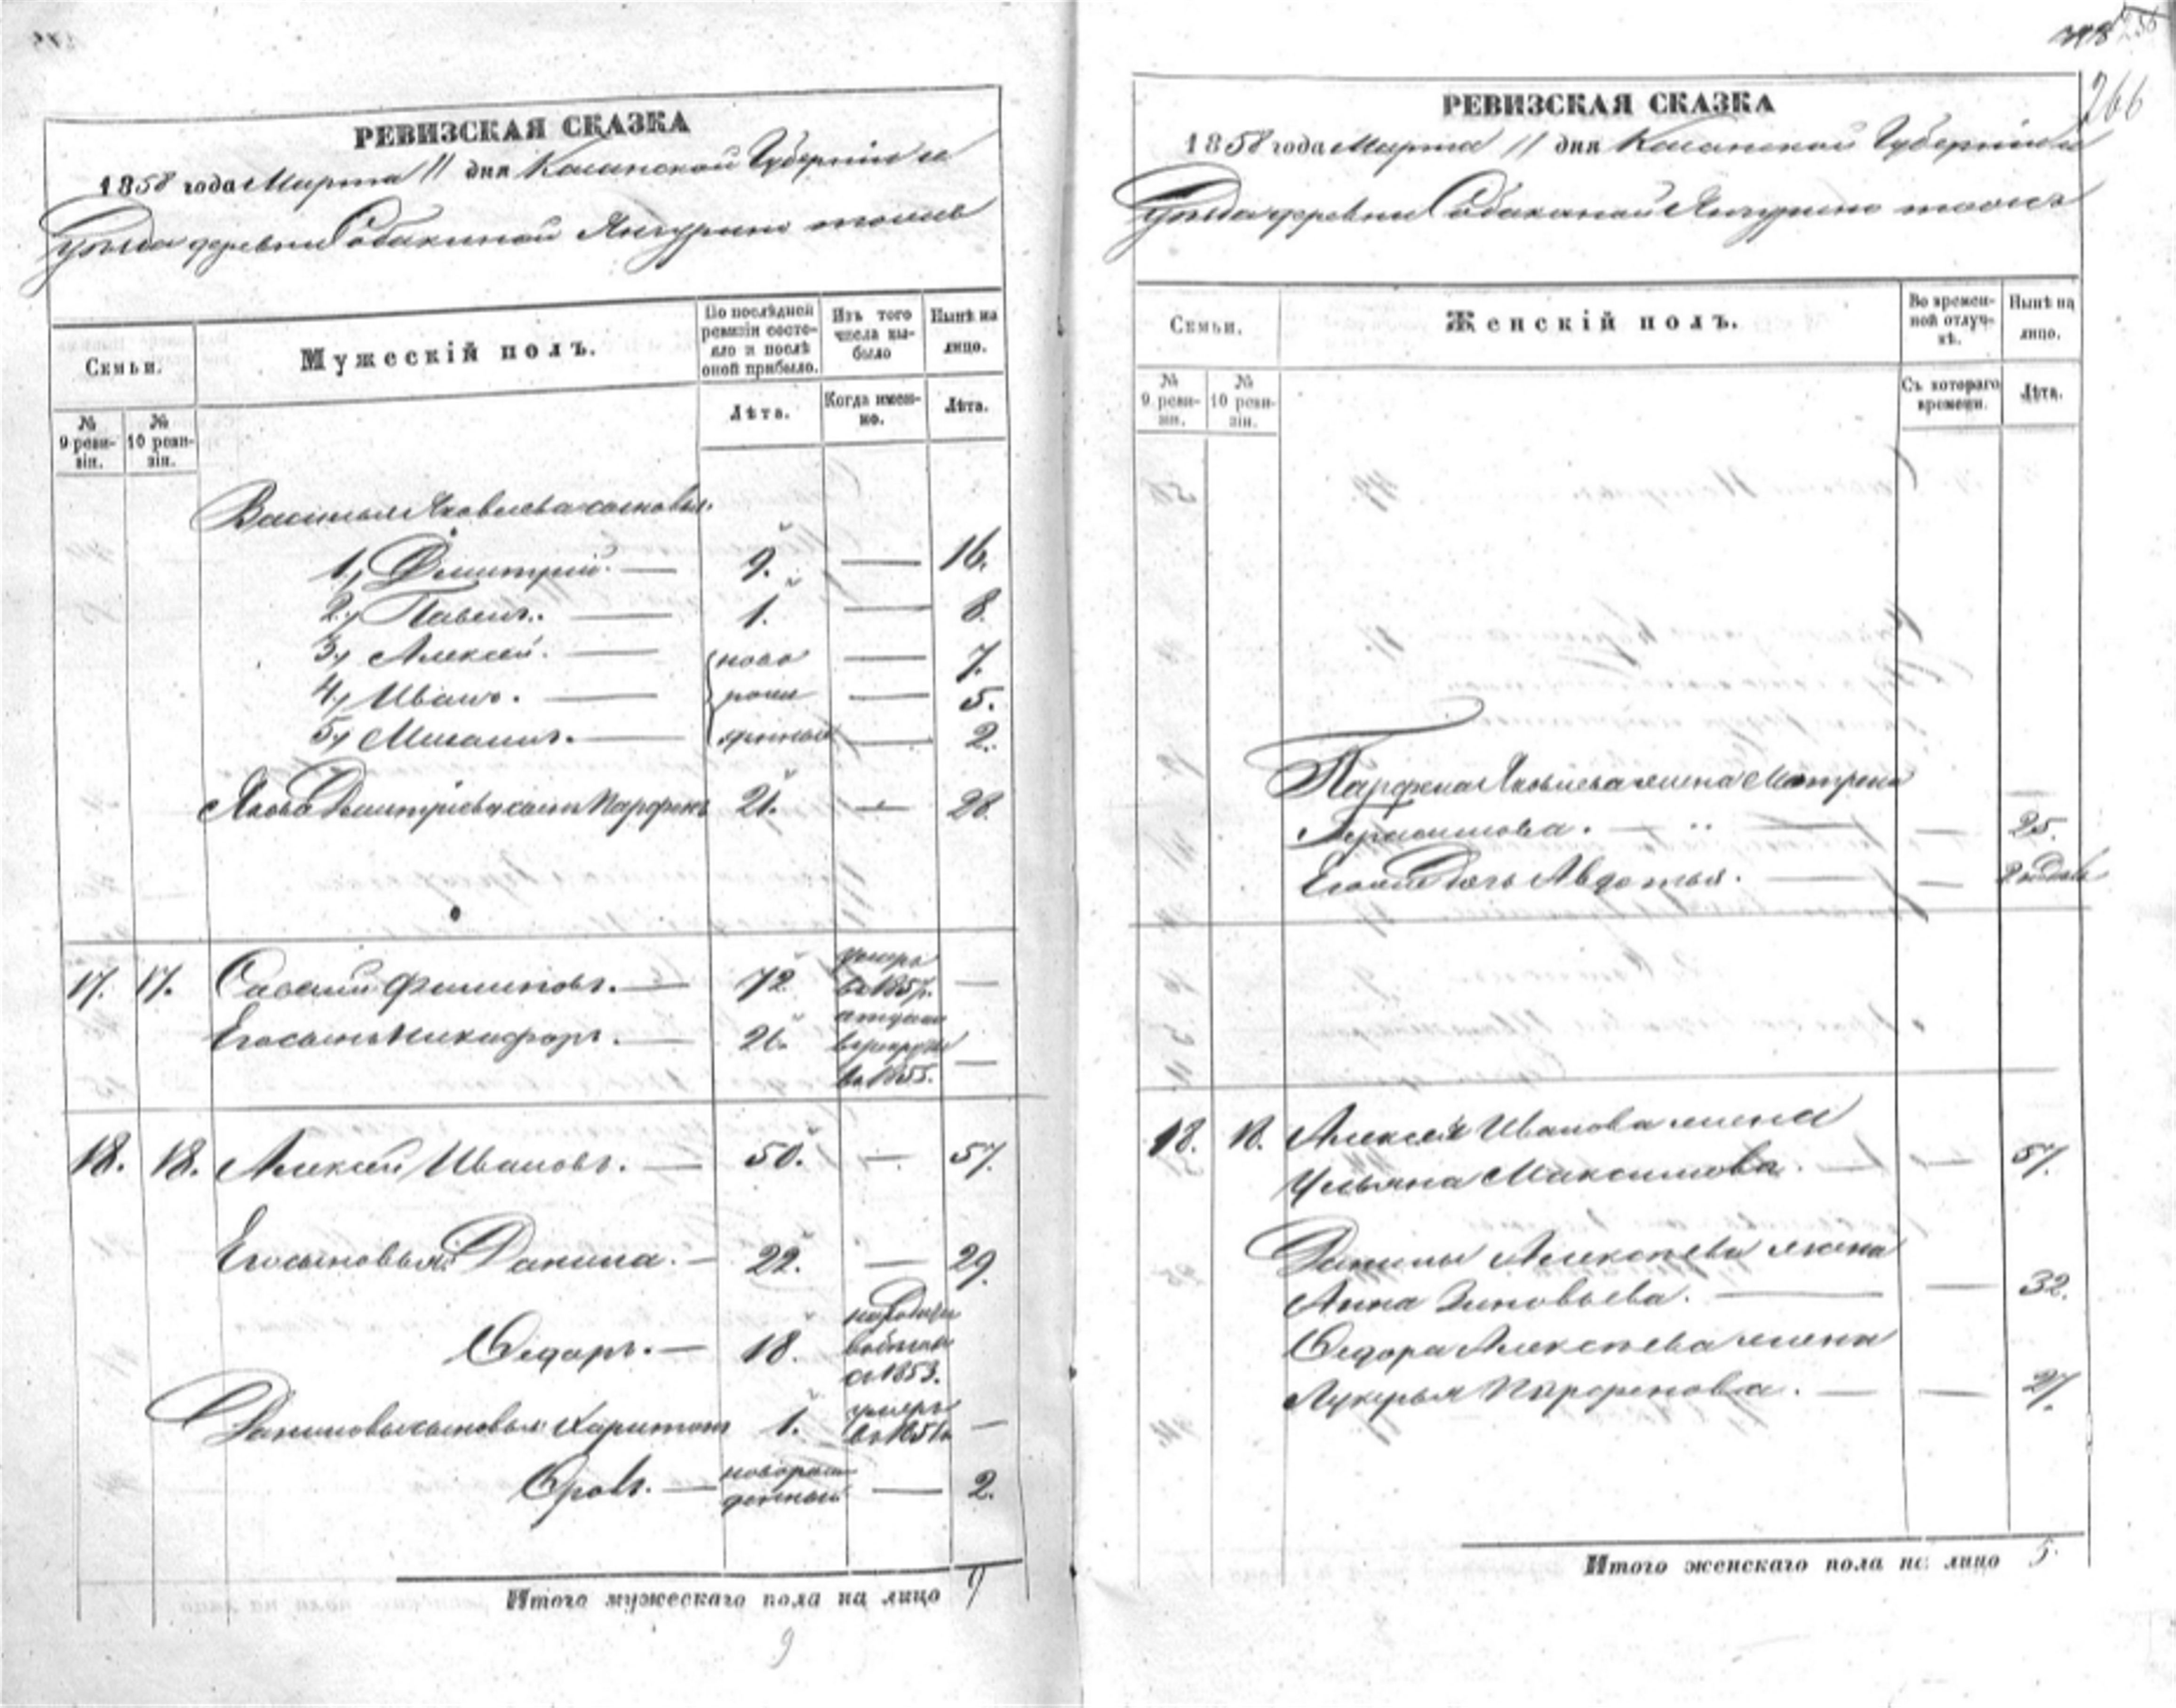 266
РЕВИЗСКАЯ СКАЗКА
1858 года Марта 11 дня Казанской Губерніи и
Уѣзда деревни Собакиной Янгурино тожъ
Семьи.
Мужескій полъ.
По послѣдней ревизіи состояло и послѣ оной прибыло.
Изъ того числа выбыло
Нынѣ на лицо.
№ 9 ревизіи.
№ 10 ревизіи.
Лѣта.
Когда именно.
Лѣта.
Василья Яковлева сыновья.
1, Дмитрій. — 9. — 16.
2, Павелъ. — 1. — 8.
3, Алексей. — ново — 7.
4, Иванъ. — рож — 5.
5, Михаилъ. —денные — 2.
Якова Дмитріева сынъ Парфенъ 21. — 28.
17. 17. Савелій Филиповъ. — 72 умеръ въ 1857. —
Его сынъ Никифоръ. — 21. отдан в рекруты въ 1855. —
18. 18. Алексей Ивановъ. — 50. — 57.
Его сыновья: Данила. — 22. — 29.
Ѳедоръ. — 18. с 1853.
Даниловы сыновья Харитонъ 1. умеръ въ 1851. —
Ѳролъ. — новорожденный — 2.
Итого мужескаго пола на лицо 9
9
РЕВИЗСКАЯ СКАЗКА
1858 года Марта 11 дня Казанской Губерніи и
Уѣзда деревни Собакиной Янгурино тожъ
Семьи.
Женскій полъ.
Во временной отлучкѣ.
Нынѣ на лицо.
№ 9 ревизіи.
№ 10 ревизіи.
Съ котораго времени.
Лѣта.
Парфена Яковлева жена Матрена
Герасимова. — — 25.
Его дочь Авдотья. — —
18. 18. Алексея Иванова жена
Ульяна Максимова. — — 57.
Данилы Алексѣева жена
Анна Зиновьева. — — 32.
Ѳедора Алексѣева жена
Лукерья Парфенова. — — 27.
Итого женскаго пола на лицо 5.